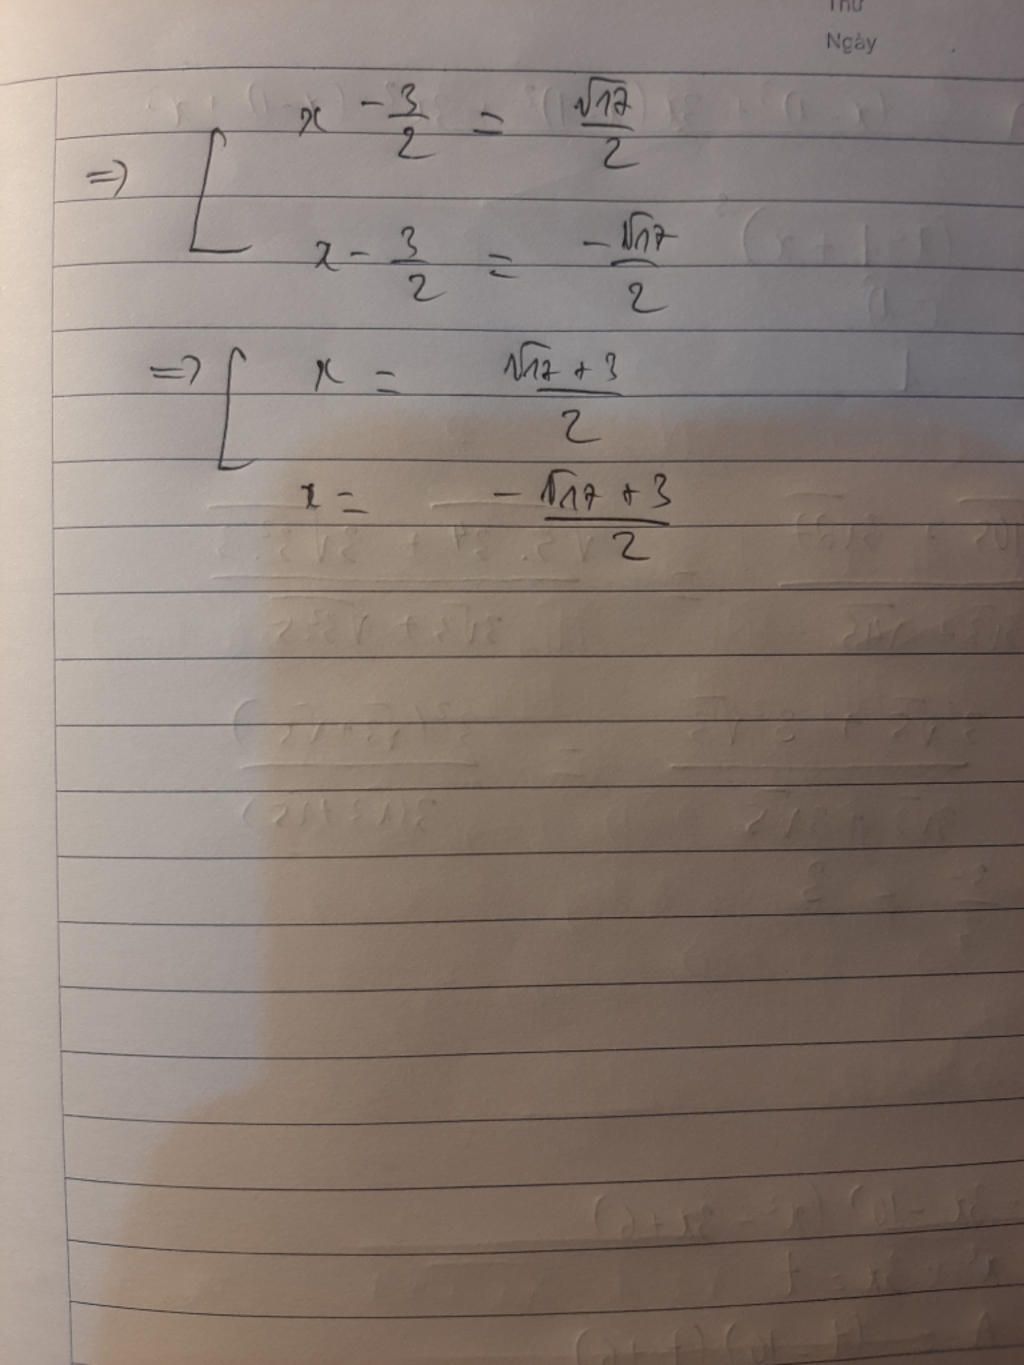 Thứ
Ngày
=> [ x - 3/2 = √17/2
x - 3/2 = -√17/2
=> [ x = (√17 + 3)/2
x = (-√17 + 3)/2